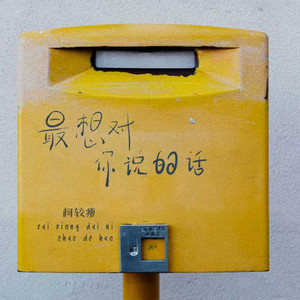 最想对
你说的话
zui xiang dui ni
shuo de hua